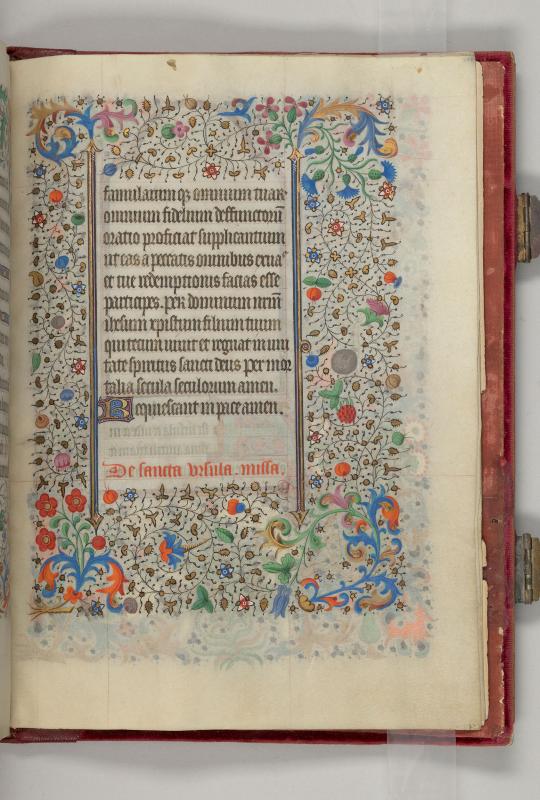 famularum qȝ omnium tuar
omnium fidelium deffunctorū
oratio proficiat supplicantium
ut eas a peccatis omnibus exua
et tue redemptionis facias esse
participes. per dominum nrm̄
ihesum xpistum filium tuum
qui tecum uiuit et regnat in uni
tate spiritus sancti deus per mor
talia secula seculorum amen.
Requiescant in pace amen.
De sancta vrsula. missa.